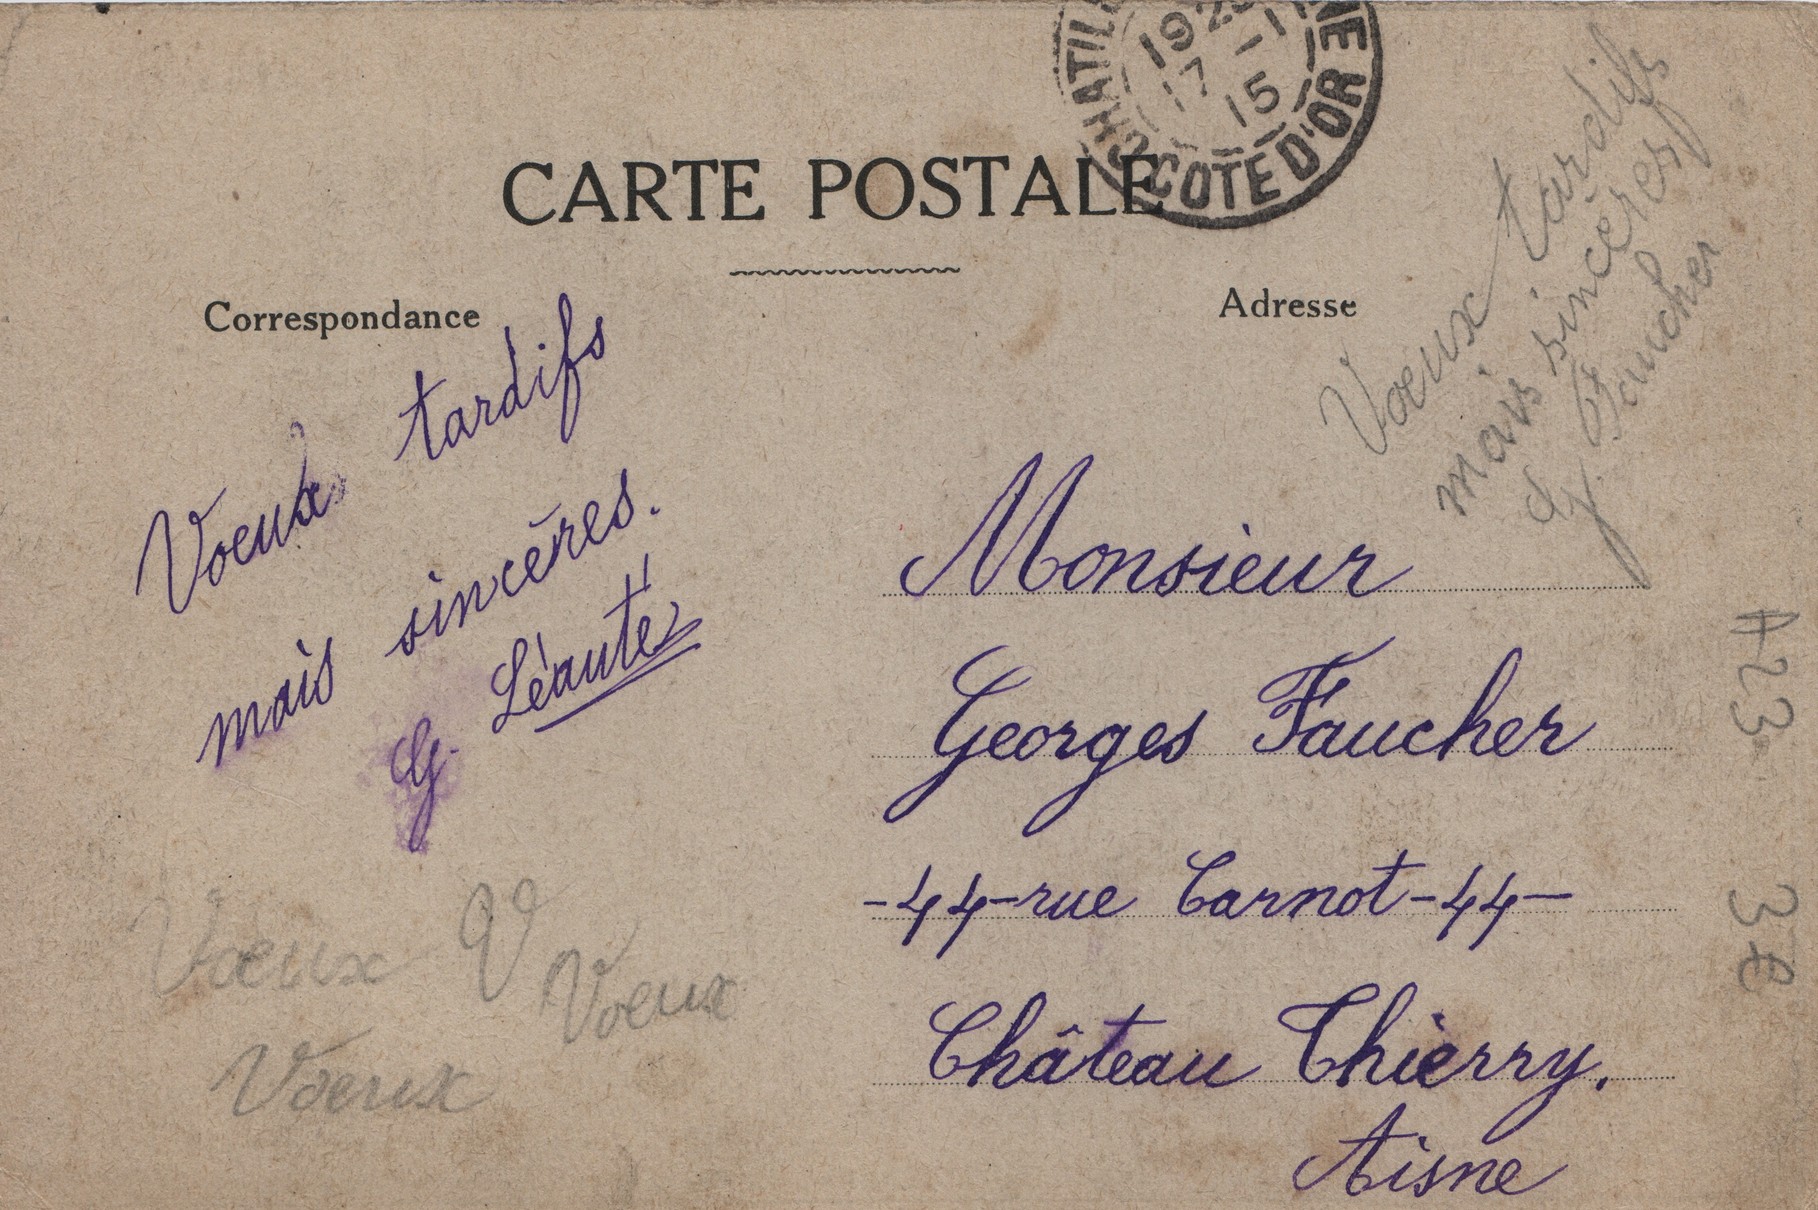 CARTE POSTALE
Correspondance
Adresse
COTE D'OR
17 -1
15
Voeux tardifs
mais sincères.
G. Léauté
Monsieur
Georges Faucher
-44-rue Carnot-44-
Château Thierry.
Aisne
Voeux tardifs
mais sincères
Faucher
Voeux V Voeux
Voeux
A23
3€